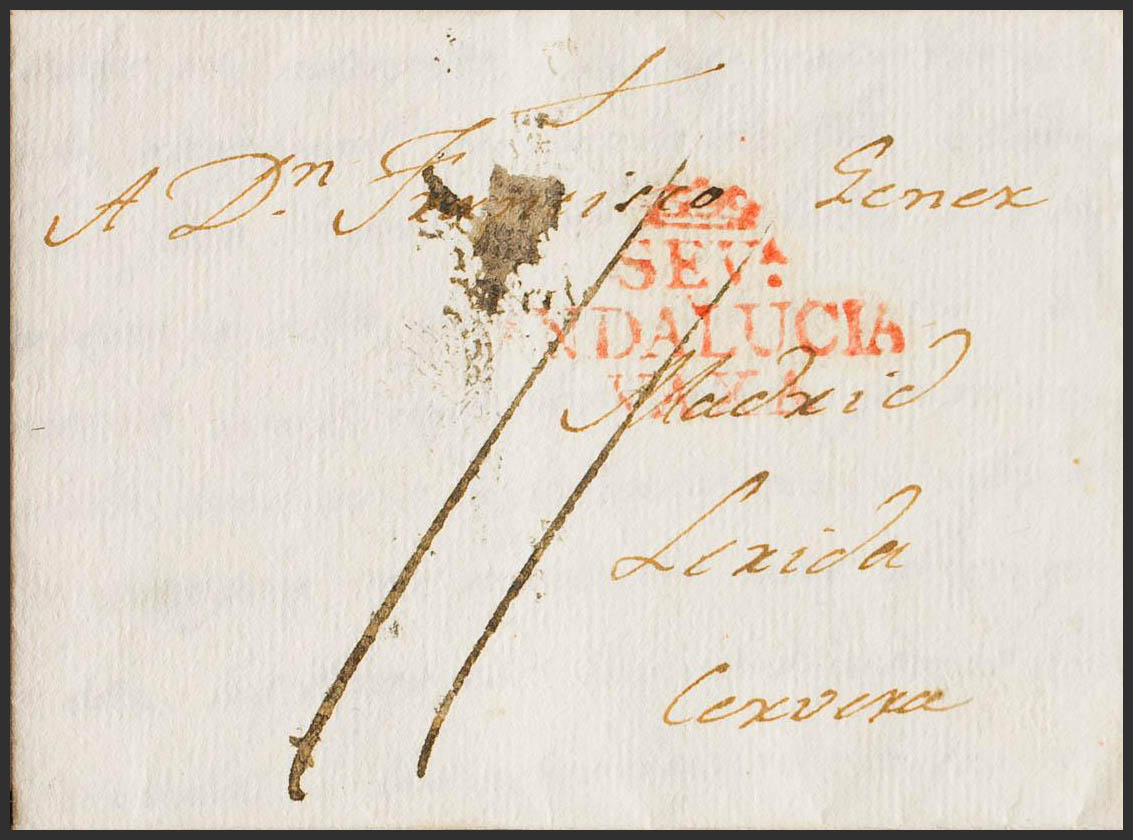 A Dn. Francisco Gener
SEV.
ANDALUCIA
BAXA
Madrid
Lerida
Cervera